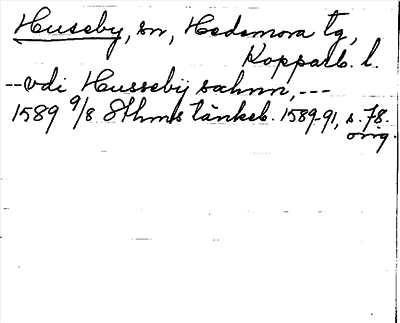 Huseby, sn, Hedemora tg,
Kopparb. l.
--vdi Hussebÿ sochnn,---
1589 9/8 Sthms tänkeb. 1589-91, s. 78.
orig.